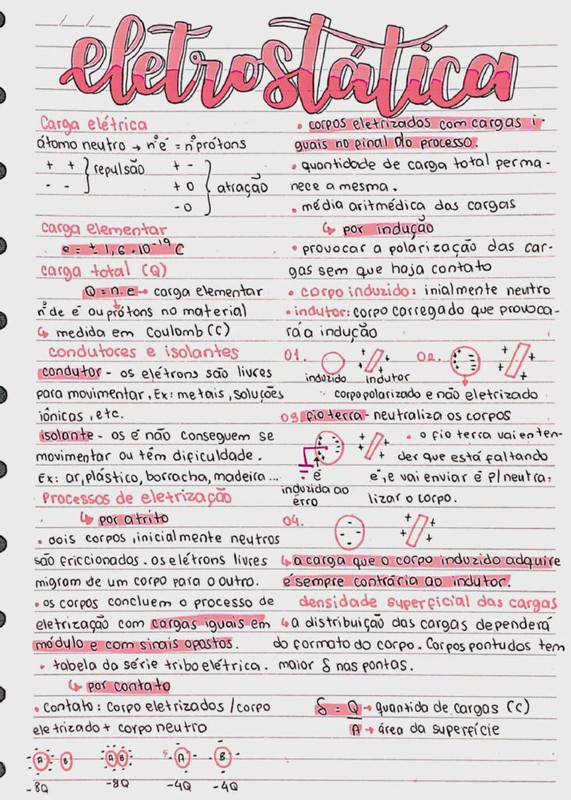 eletrostática
Carga elétrica
átomo neutro → nº é = nº prótons
+ + } repulsão + - } atração
- - + 0
- 0
carga elementar
e = ± 1,6 . 10⁻¹⁹ C
carga total (Q)
Q = n . e → carga elementar
nº de é ou prótons no material
↳ medida em Coulomb (C)
condutores e isolantes
condutor - os elétrons são livres
para movimentar. Ex: metais, soluções
iônicas, etc.
isolante - os é não conseguem se
movimentar ou têm dificuldade.
Ex: ar, plástico, borracha, madeira...
Processos de eletrização
↳ por atrito
• dois corpos, inicialmente neutros
são friccionados. os elétrons livres
migram de um corpo para o outro.
• os corpos concluem o processo de
eletrização com cargas iguais em
módulo e com sinais opostos.
• tabela da série tribo elétrica.
↳ por contato
• Contato: Corpo eletrizados / corpo
eletrizado + corpo neutro
A B A B A B
-8Q -8Q -4Q -4Q
• corpos eletrizados com cargas i-
guais no final do processo.
• quantidade de carga total perma-
nece a mesma.
• média aritmédica das cargas
↳ por indução
• provocar a polarização das car-
gas sem que haja contato
• corpo induzido: inialmente neutro
• indutor: corpo carregado que provoca-
rá a indução
01. 02.
induzido indutor
corpo polarizado e não eletrizado
03. fio terra - neutraliza os corpos
• o fio terra vai enten-
der que está faltando
é, e vai enviar é p/ neutra,
lizar o corpo.
é
induzida ao
erro
04.
↳ a carga que o corpo induzido adquire
é sempre contrária ao indutor.
densidade superficial das cargas
↳ a distribuição das cargas dependerá
do formato do corpo. Corpos pontudos tem
maior δ nas pontas.
δ = Q → quantida de cargas (C)
A → área da superfície